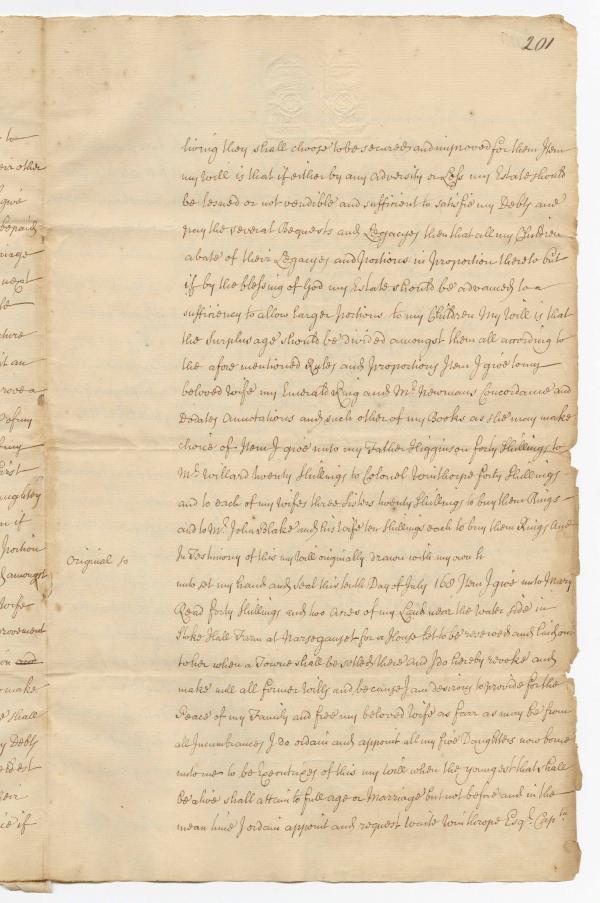 201
living they shall choose to be secured and improved for them Item
my Will is that if either by any adversity or Loss my Estate should
be lesned or not vendible and sufficient to satisfie my Debts and
pay the several Bequests and Legacyes then that all my Children
abate of their Legacyes and Portions in Proportion thereto but
if by the blessing of God my Estate should be advanced to a
sufficiency to allow larger Portions to my Children My Will is that
the Surplusage should be divided amongst them all according to
the afore mentioned Rules and Proportions Item I give to my
beloved Wife my Emerald Ring and Mr. Newmans Concordance and
Deodates Annotations and such other of my Books as she may make
choice of Item I give unto my Father Higginson forty Shillings to
Mr. Willard twenty Shillings to Colonel Winthorpe forty Shillings
and to each of my Wifes three Sisters twenty Shillings to buy them Rings
and to Mr. John Blake and his Wife ten Shillings each to buy them Rings And
In Testimony of this my Will originally drawn with my own h
Original so
unto set my hand and Seal this tenth Day of July 168 Item I give unto Mary
Read forty Shillings and two Acres of my Land near the Water side in
Stoke Hall Farm at Narraganset for a House Lot to be reserved and laid out
to her when a Towne shall be setled there and I do hereby revoke and
make null all former Wills and because I am desirous to provide for the
Peace of my Family and free my beloved Wife as farr as may be from
all Incumbrances I do ordain and appoint all my five Daughters now borne
unto me to be Executrixes of this my Will when the youngest that shall
be alive shall attain to full age or Marriage but not before and in the
mean time I ordain appoint and request Waite Winthrope Esqr. Captn